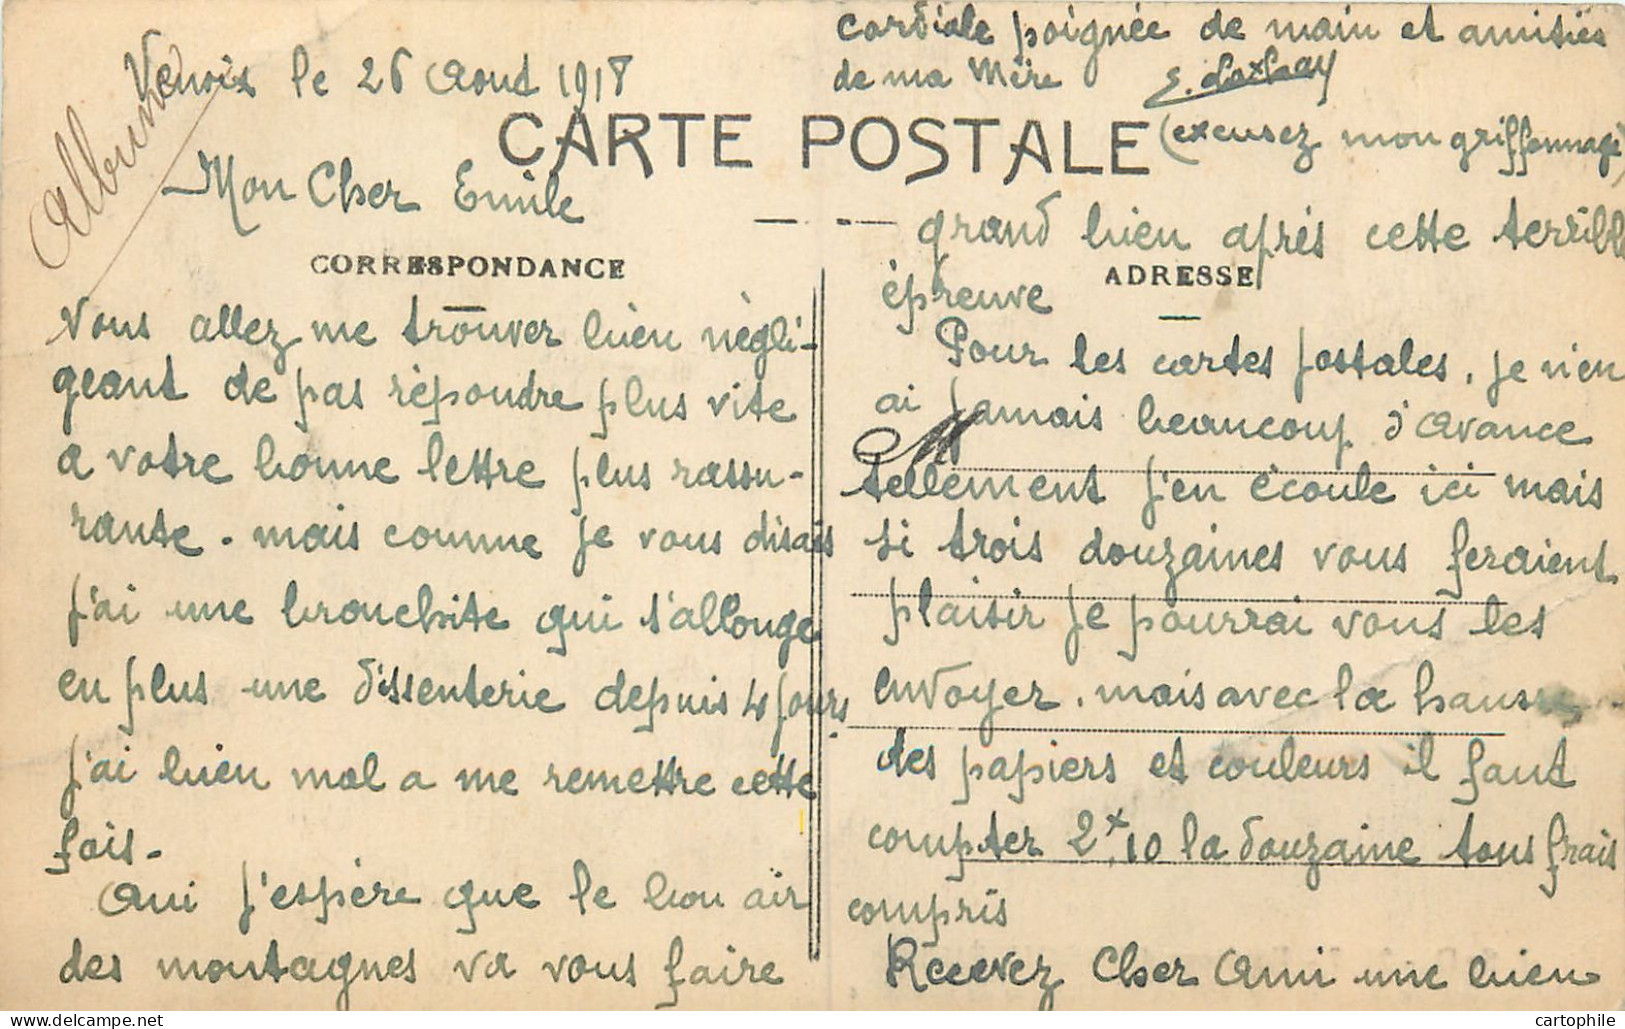 Album
Venoix le 26 Aout 1918
CARTE POSTALE
Mon Cher Emile
CORRESPONDANCE
Vous allez me trouver bien négli-
geant de pas répondre plus vite
a votre bonne lettre plus rassu-
rante. mais comme je vous disais
j'ai une bronchite qui s'allonge
en plus une dissenterie depuis 4 jours
j'ai bien mal a me remettre cette
fois.
Oui j'espère que le bon air
des montagnes va vous faire
grand bien aprés cette terrible
épreuve
ADRESSE
Pour les cartes postales, je n'en
ai jamais beaucoup d'avance
tellement j'en écoule ici mais
si trois douzaines vous feraient
plaisir je pourrai vous les
envoyer. mais avec la hausse
des papiers et couleurs il faut
compter 2x,10 la douzaine tous frais
compris
Recevez Cher Ami une bien
cordiale poignée de main et amitiés
de ma Mère
E.
(excusez mon griffonnage)
cartophile